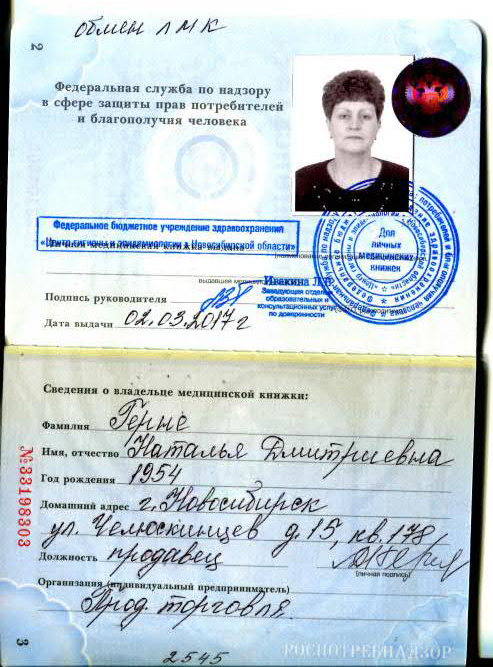 обмен ЛМК
2
Федеральная служба по надзору
в сфере защиты прав потребителей
и благополучия человека
Федеральное бюджетное учреждение здравоохранения
«Центр гигиены и эпидемиологии в Новосибирской области»
Для
личных
медицинских
книжек
Ивакина Л.Р.
Заведующая отделом
образовательных и
консультационных услуг
по доверенности
Подпись руководителя
Дата выдачи 02.03.2017 г
Сведения о владельце медицинской книжки:
Фамилия Герне
Имя, отчество Наталья Дмитриевна
Год рождения 1954
Домашний адрес г. Новосибирск
ул. Челюскинцев д. 15, кв. 178
Должность продавец
(личная подпись)
Организация (индивидуальный предприниматель)
Прод. торговля
№33198303
3
2545
РОСПОТРЕБНАДЗОР